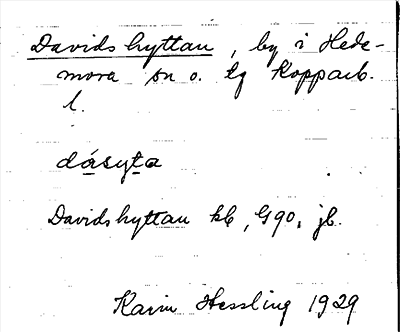 Davidshyttan, by i Hede-
mora sn o. tg Kopparb.
l.
dásyta
Davidshyttan kb, G90, jb.
Karin Hessling 1929